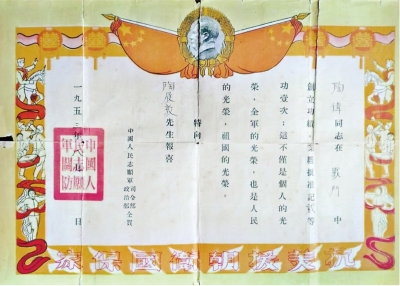 同志在 戰鬥 中
創立功績，業經批准記 等
功壹次；這不僅是個人的光
榮，全軍的光榮，也是人民
的光榮，祖國的光榮。
特向
陶 先生報喜
中國人民志願軍 司令部 政治部 仝賀
一九五 年 月 日
中國人民志願軍關防
抗美援朝衛國保家